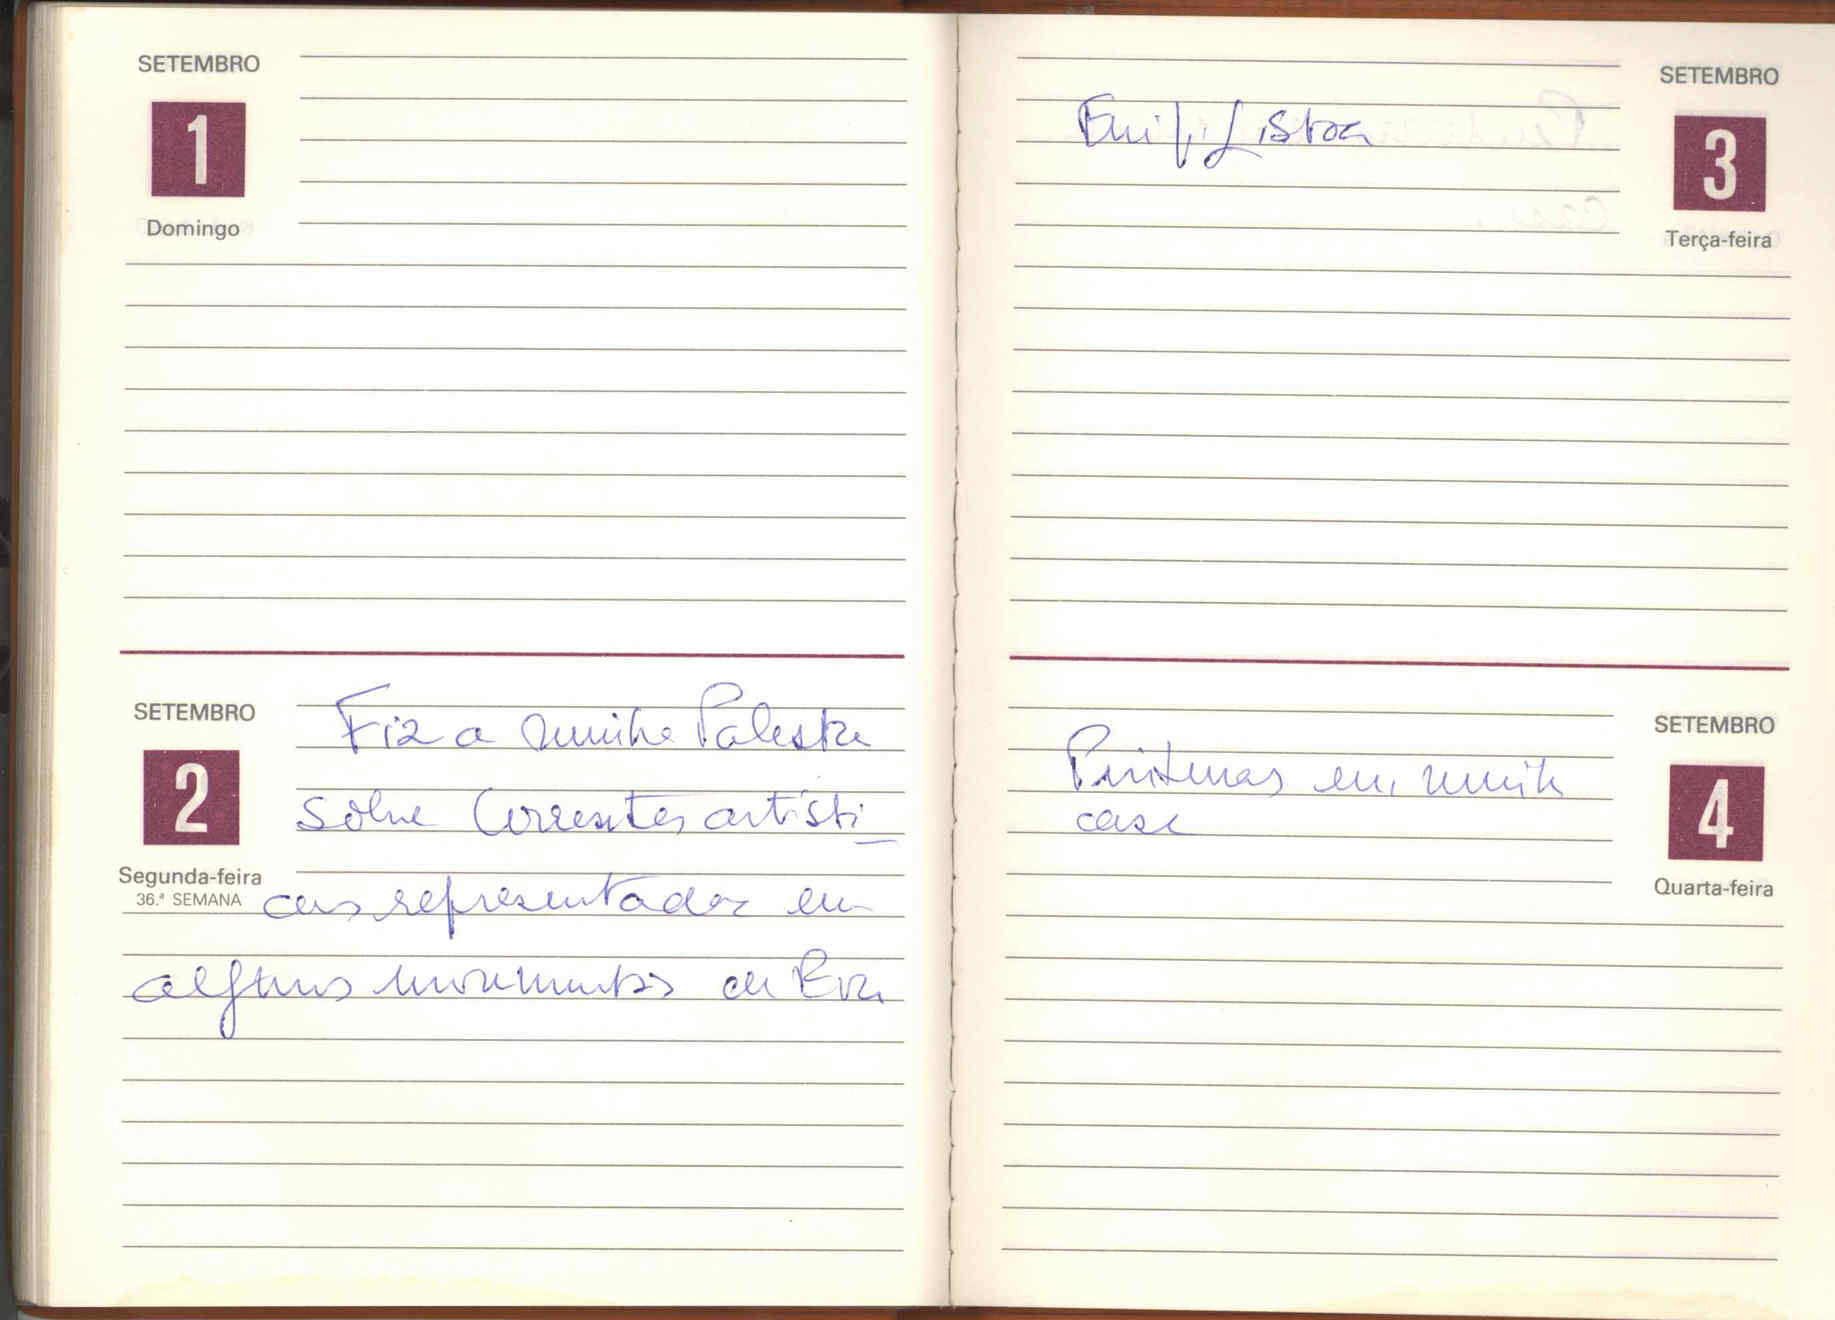 SETEMBRO
1
Domingo
SETEMBRO
2
Segunda-feira
36.ª SEMANA
Fiz a minha Palestra
sobre Correntes artísti-
cas representadas em
alguns monumentos de Évora
SETEMBRO
3
Terça-feira
Fui p. Lisboa
SETEMBRO
4
Quarta-feira
Pinturas em minha
casa